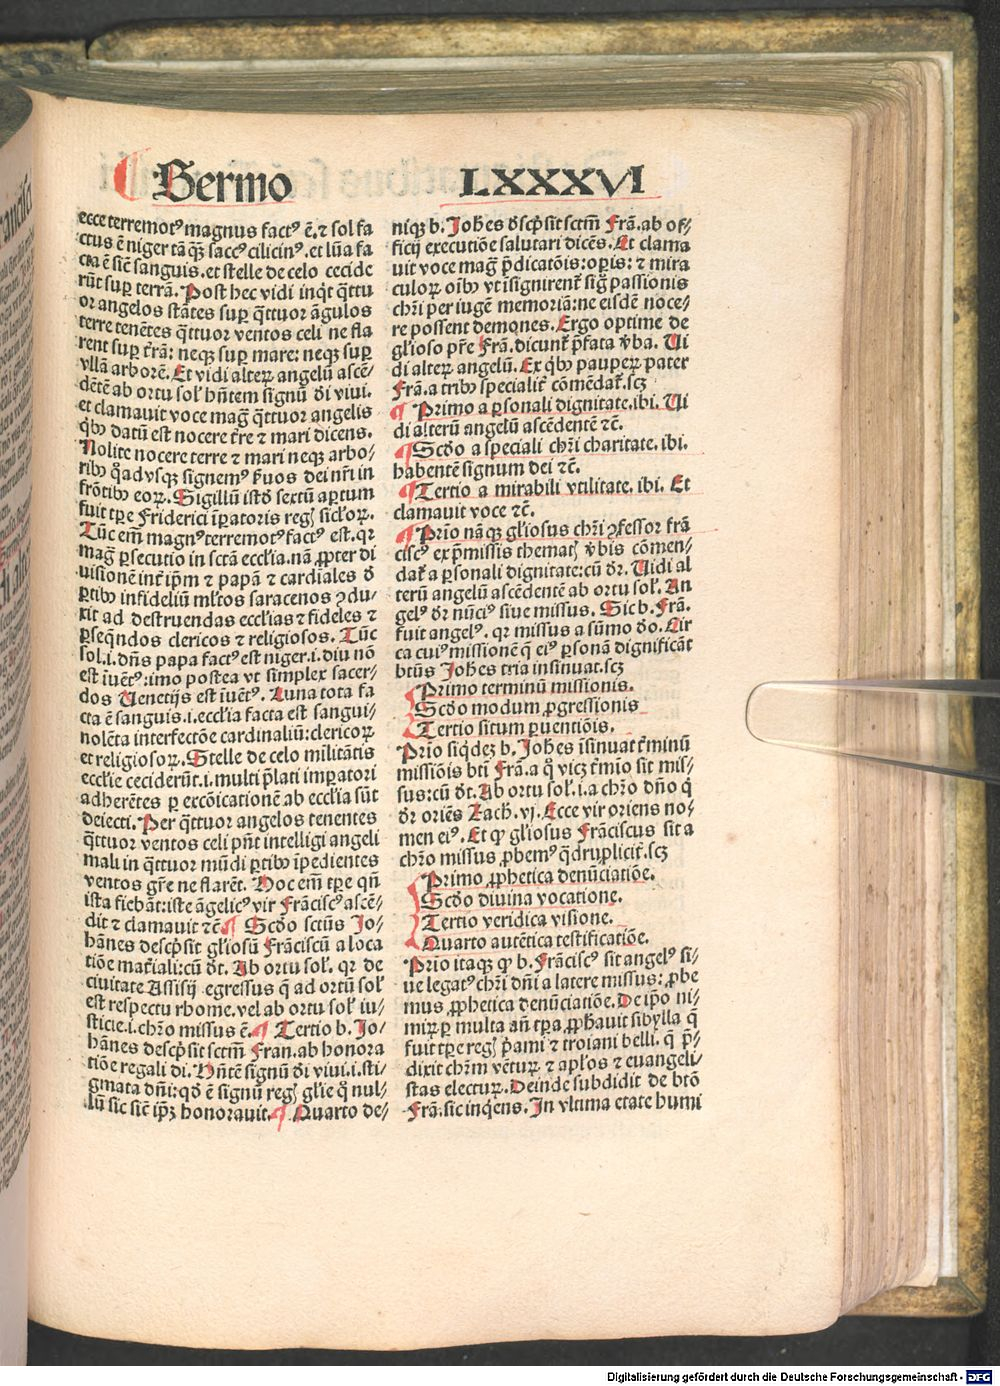 Sermo LXXXVI
ecce terremotꝰ magnus factꝰ ē. ⁊ sol fa
ctus ē niger tāqꝫ saccꝰ cilicinꝰ. et lūa fa
cta ē sicut sanguis. et stelle de celo cecide
rūt suꝑ terrā. Post hec vidi inqͥt qͣttu
or angelos stātes suꝑ qͣttuor āgulos
terre tenētes qͣttuor ventos celi ne fla
rent suꝑ t̄rā: neqꝫ suꝑ mare: neqꝫ suꝑ
vllā arborē. Et vidi alteꝝ angelū ascē-
dētē ab ortu solꝭ hn̄tem signū dī viui.
et clamauit voce maḡ qͣttuor angelis
qͥbꝰ datū est nocere t̄re ⁊ mari dicens.
Nolite nocere terre ⁊ mari neqꝫ arbo-
ribꝰ qͦadvsqꝫ signemꝰ ẜuos dei nr̄i in
frōtibꝰ eoꝝ. Sigillū istd̄ sextū aꝑtum
fuit tꝑe Friderici īꝑatoris regꝭ siclͦoꝝ.
Tūc em̄ magnꝰ terremotꝰ factꝰ est. qꝛ
maḡ ꝑsecutio in sctā eccl̓ia. nā ꝓpter di
uisionē int̄ ip̄m ⁊ papā ⁊ cardiales d̄
ꝑtibꝰ infideliū ml̓tos saracenos ꝯdu-
xit ad destruendas eccl̓ias ⁊ fideles ⁊
ꝑseqn̄dos clericos ⁊ religiosos. Tūc
sol. i. dn̄s papa factꝰ est niger. i. diu nō
est īuētꝰ: imo postea vt simplex sacer-
dos Venetijs est īuētꝰ. Luna tota fa
cta ē sanguis. i. eccl̓ia facta est sangui-
nolēta interfectōe cardinaliū: clericoꝝ
et religiosoꝝ. Stelle de celo militātis
eccl̓ie ceciderūt. i. multi p̄lati imꝑatori
adherētes ꝑ excōicationē ab eccl̓ia sūt
deiecti. Per qͣttuor angelos tenentes
qͣttuor ventos celi pn̄t intelligi angeli
mali in qͣttuor mūdi ꝑtibꝰ īpedientes
ventos gr̄e ne flarēt. Hoc em̄ tꝑe qn̄
ista fiebāt: iste āgelicꝰ vir Frāciscꝰ ascē-
dit ⁊ clamauit ⁊c̄ ¶ Scd̄o sctūs Jo-
hānes descp̄sit gl̓iosū Frāciscū a loca
tiōe mat̓iali: cū dt̄. Ab ortu solꝭ. qꝛ de
ciuitate Assisij egressus qͣ ad ortū solꝭ
est respectu rhome. vel ab ortu solꝭ iu-
sticie. i. chr̄o missus ē. ¶ Tertio b. Jo-
hānes descp̄sit sctm̄ Fran. ab honora
tiōe regali di. Hn̄tē signū dī viui. i. sti-
gmata dn̄i: qd̄ ē signū regꝭ gl̓ie qͦ nul-
lū sic sicut ip̄ꝫ honorauit. ¶ Quarto de-
niqꝫ b. Johes dscp̄sit sctm̄ Frā. ab of-
ficij executiōe salutari dicēs. Et clama
uit voce maḡ p̄dicatōis: oꝑis: ⁊ mira
culoꝝ oībꝰ vt īsignirent̄ sigͦ passionis
chr̄i per iugē memoriā: ne eisdē noce-
re possent demones. Ergo optime de
gl̓ioso pr̄e Frā. dicunt̄ p̄fata v̄ba. Ui
di alteꝝ angelū. Ex qͥbꝰ pauperꝫ pater
Frā. a tribꝰ specialit̄ cōmēdat̄. scꝫ
¶ Primo a ꝑsonali dignitate. ibi. Ui
di alterū angelū ascēdentē ⁊c̄.
¶ Scd̄o a speciali chr̄i charitate. ibi.
habentē signum dei ⁊c̄.
¶ Tertio a mirabili vtilitate. ibi. Et
clamauit voce ⁊c̄.
¶ Prīo nāqꝫ gl̓iosus chr̄i ꝯfessor frā
ciscꝰ ex p̄missis thematꝭ v̄bis cōmen-
dat̄ a ꝑsonali dignitate: cū dꝛ. Uidi al
terū angelū ascēdentē ab ortu solꝭ. An
gelꝰ dꝛ nūciꝰ siue missus. Sic b. Frā.
fuit angelꝰ. qꝛ missus a sūmo do. Cir
ca cuiꝰ missionē qͣ eiꝰ ꝑsonā dignificāt
btūs Johes tria insinuat. scꝫ
Primo terminū missionis.
Scd̄o modum ꝓgressionis
Tertio situm ꝑuentiōis.
Prīo siqͥdeꝫ b. Johes īsinuat t̄minū
missiōis btī Frā. a qͦ vicꝫ t̄mīo sit mis-
sus: cū dt̄. Ab ortu solꝭ. i. a chr̄o dn̄o qͥ
dꝛ oriēs Zach. vj. Ecce vir oriens no-
men eiꝰ. Et qꝙ gl̓iosus Frāciscus sit a
chr̄o missus ꝓbemꝰ qͣdruplicit̄. scꝫ
Primo ꝓphetica denūciatiōe.
Scd̄o diuina vocatione.
Tertio veridica visione.
Quarto autētica testificatiōe.
Prīo itaqꝫ ꝙ b. Frāciscꝰ sit angelꝰ si-
ue legatꝰ chr̄i dn̄i a latere missus: ꝓbe
mus ꝓphetica denūciatiōe. De ip̄o ni-
miꝝ ꝑ multa an̄ tꝑa ꝓph̄auit sibylla qͣ
fuit tꝑe regꝭ p̄ami ⁊ troiani belli. qͣ p̄-
dixit chr̄m vētuꝝ ⁊ apl̓os ⁊ euangeli-
stas electuꝝ. Deinde subdidit de btō
Frā: sic inqͥens. In vltima etate humi
Digitalisierung gefördert durch die Deutsche Forschungsgemeinschaft - DFG